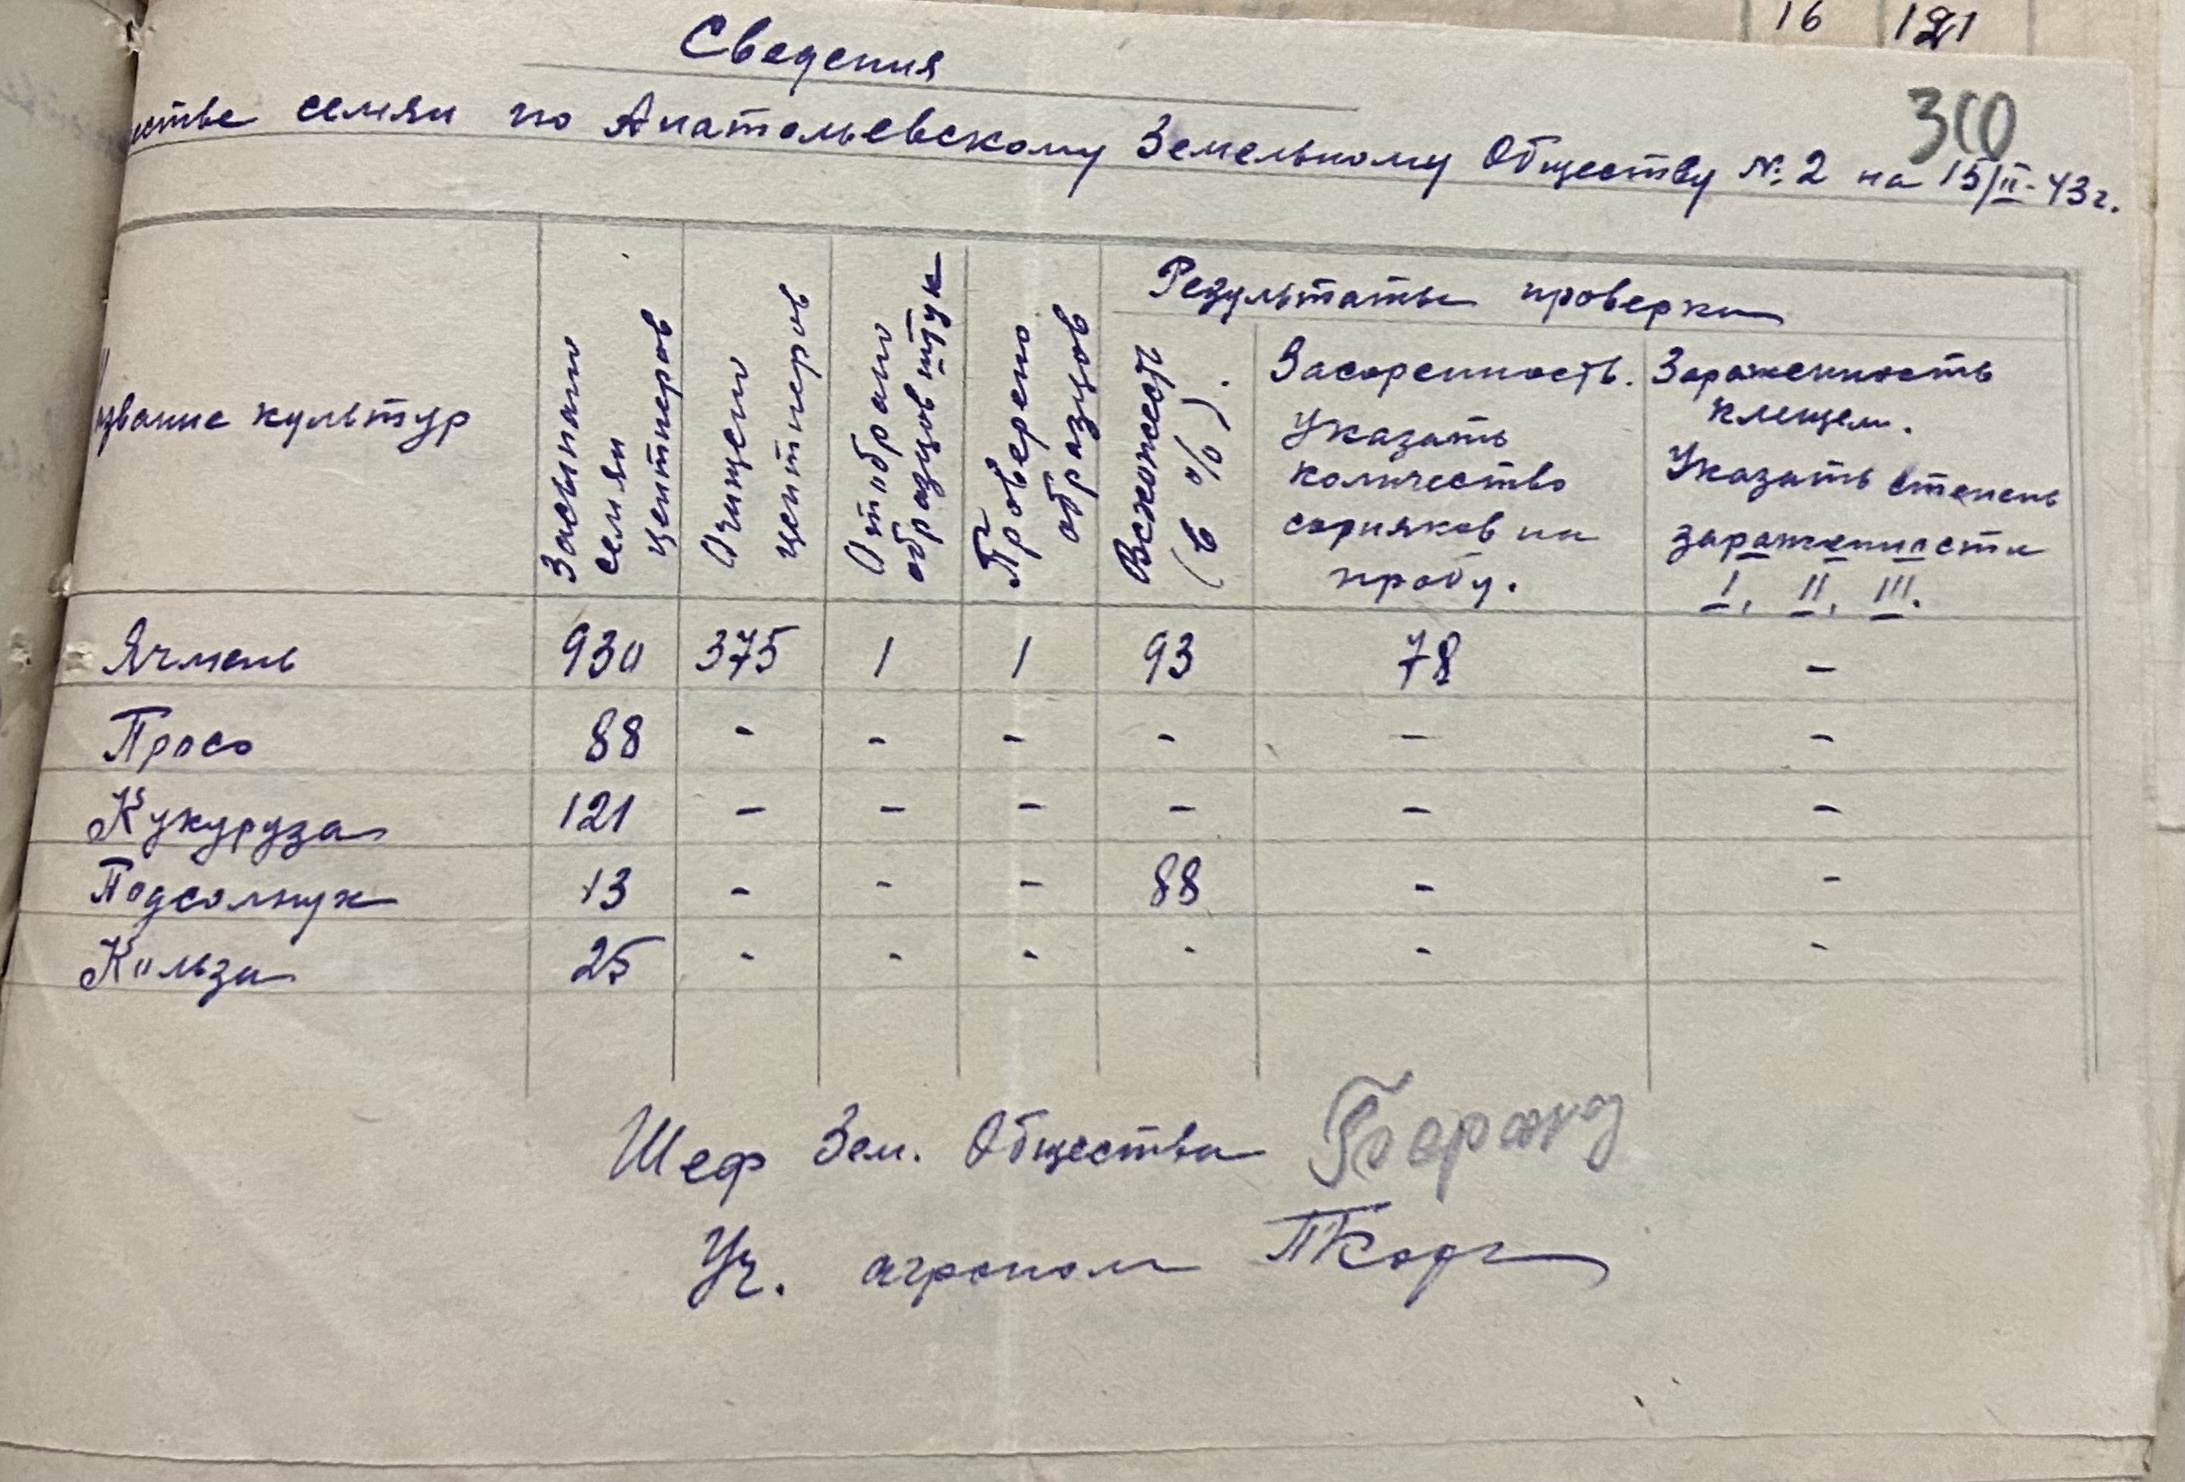 16 121
Сведения
300
естве семян по Анатольевскому Земельному Обществу №2 на 15/II-43г.
звание культур
Засыпано
семян
центнеров
Очищено
центнеров
Отобрано
образцов штук
Проверено
образцов
Результаты проверки
Всхожесть
(в %).
Засоренность.
Указать
количество
сорняков на
пробу.
Зараженность
клещем.
Указать степень
зараженности
I, II, III.
Ячмень 930 375 1 1 93 78 -
Просо 88 - - - - - -
Кукуруза 121 - - - - - -
Подсолнух 13 - - - 88 - -
Кольза 25 - - - - - -
Шеф Зем. Общества
Уч. агроном